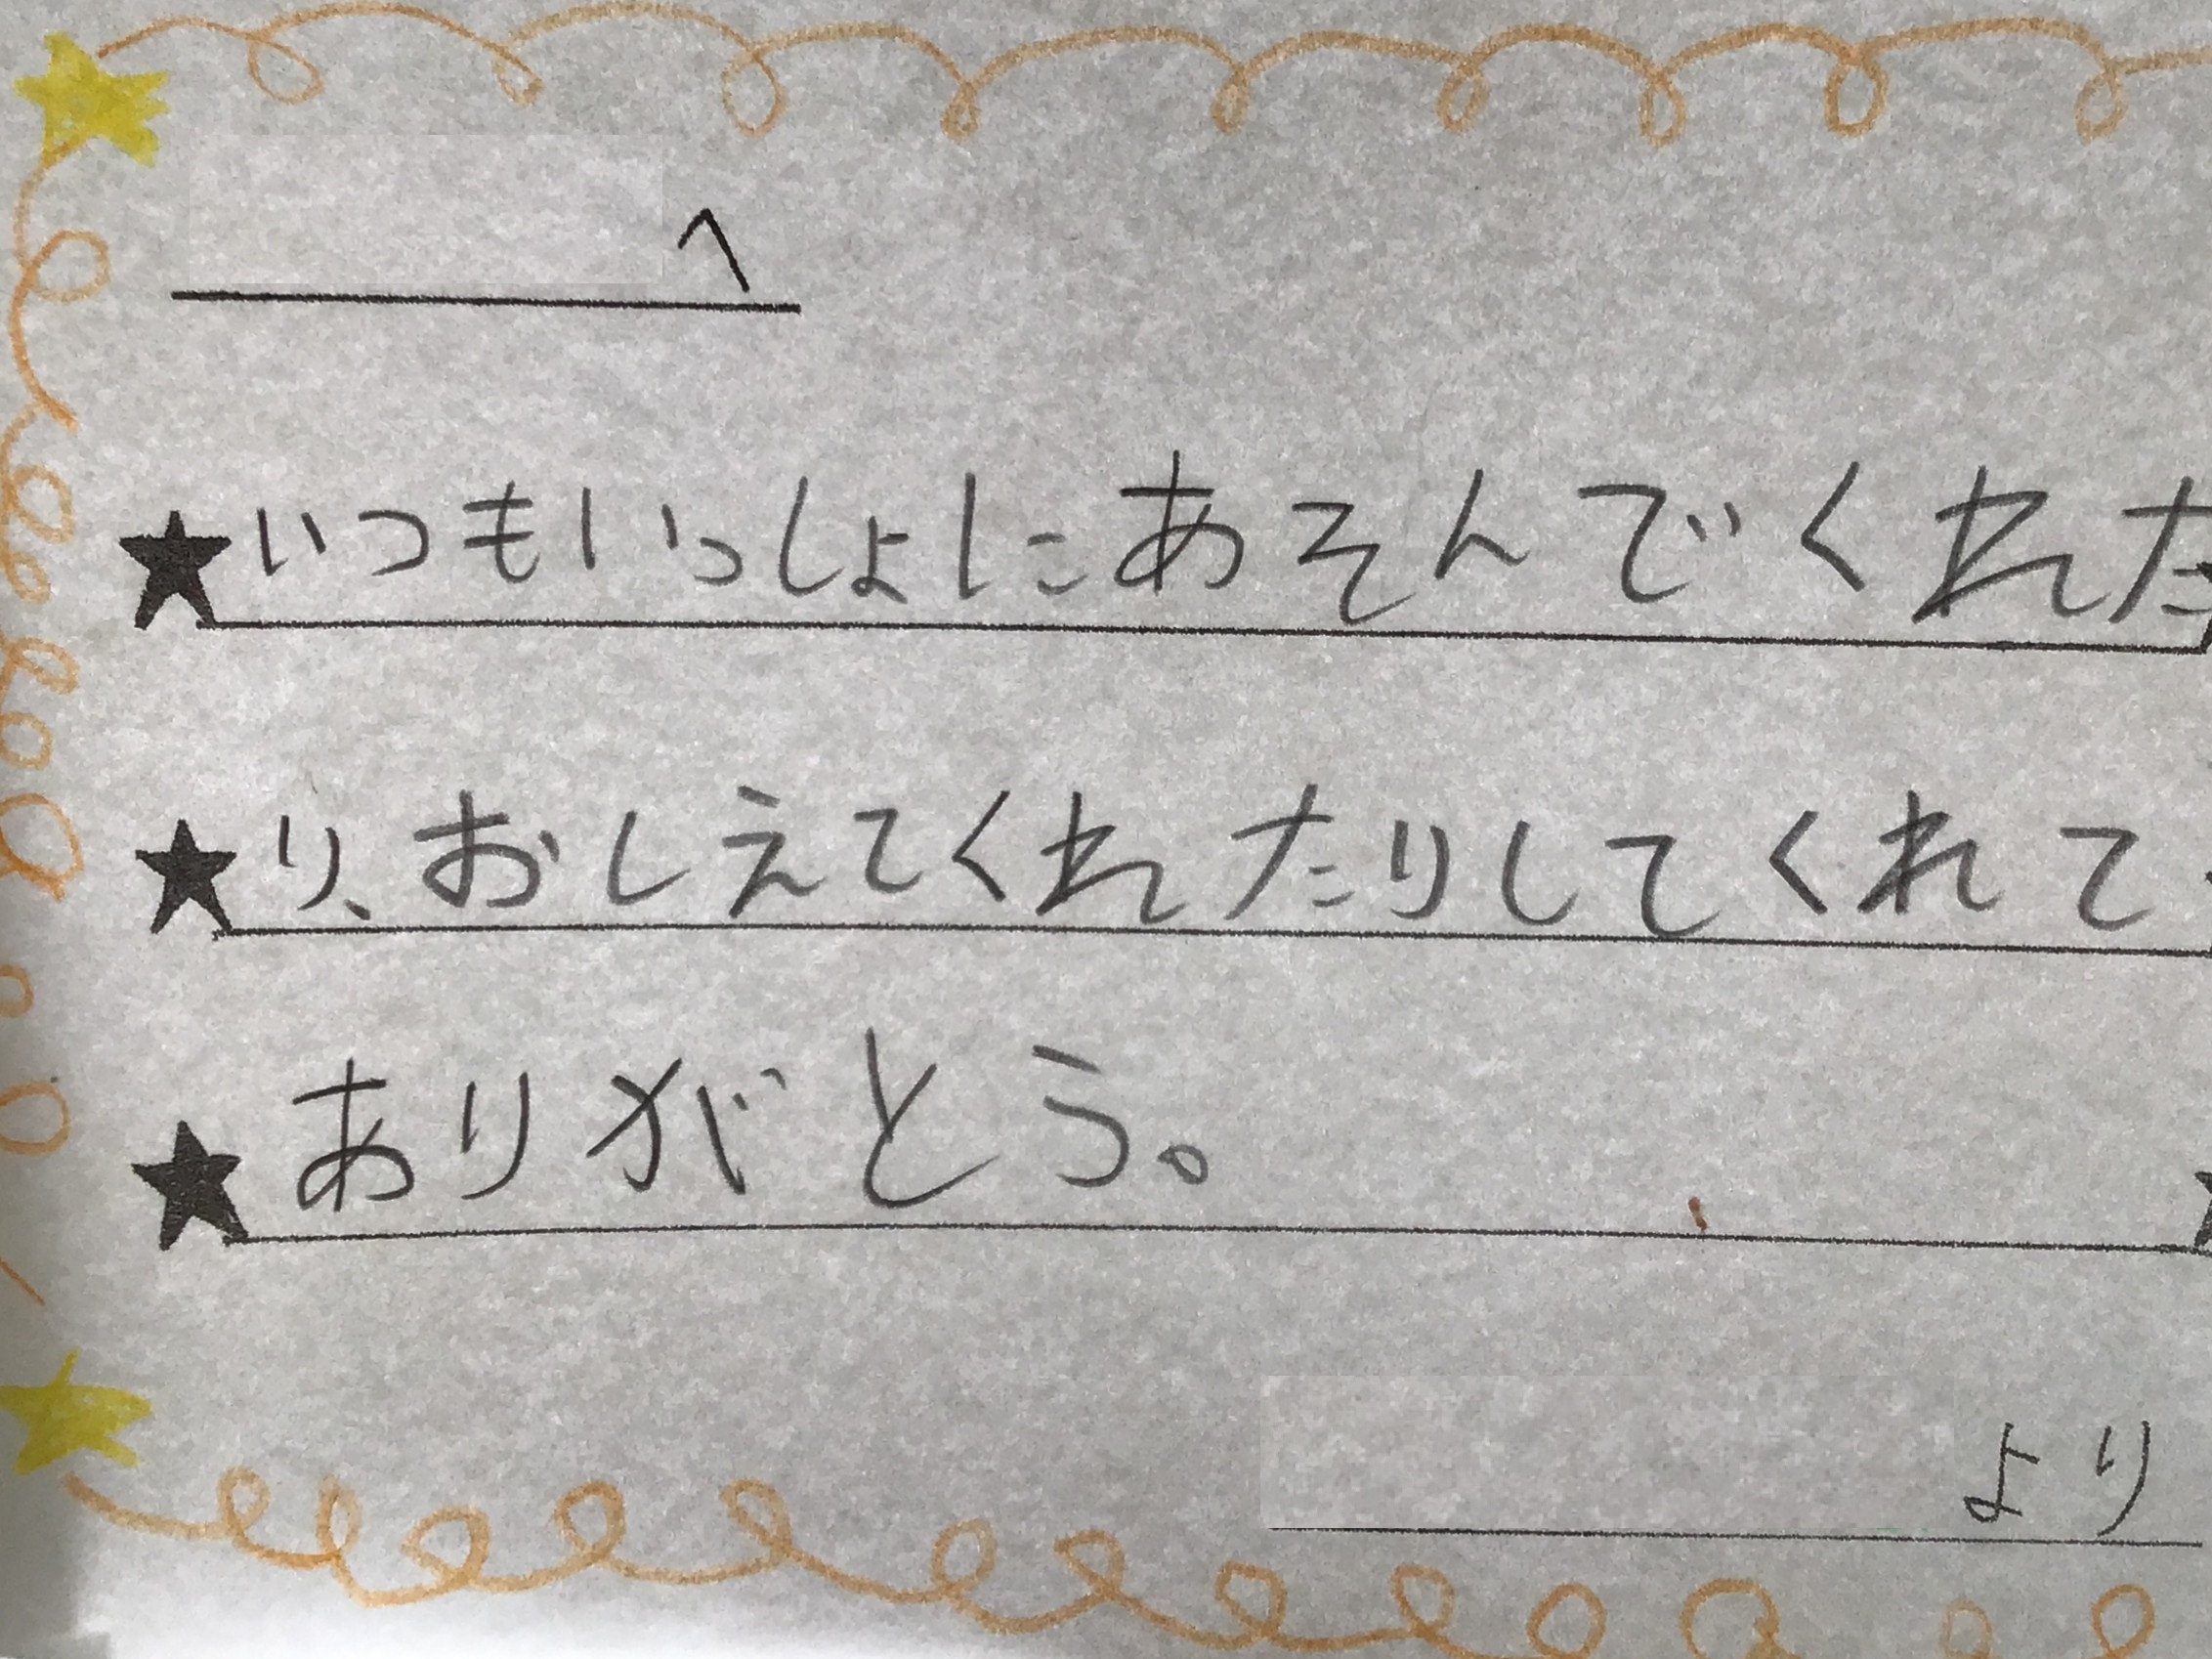 へ
★いつもいっしょにあそんでくれた
★り、おしえてくれたりしてくれて
★ありがとう。
より